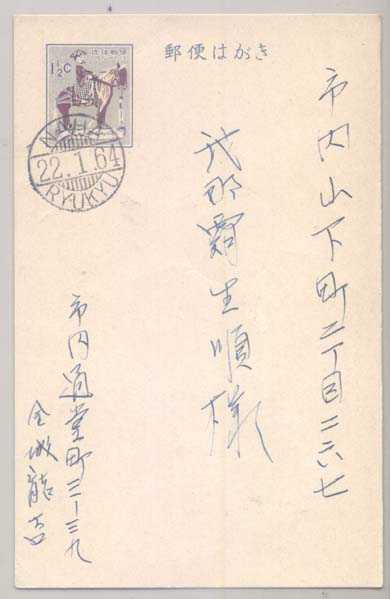 郵便はがき
1½¢
NAHA
22.1.64
RYUKYU
市内山下町二丁目二六七
我那覇生順様
市内通堂町三ー三九
金城龍吉